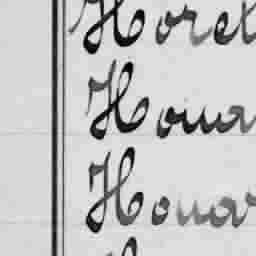 Horel
Houar
Houar